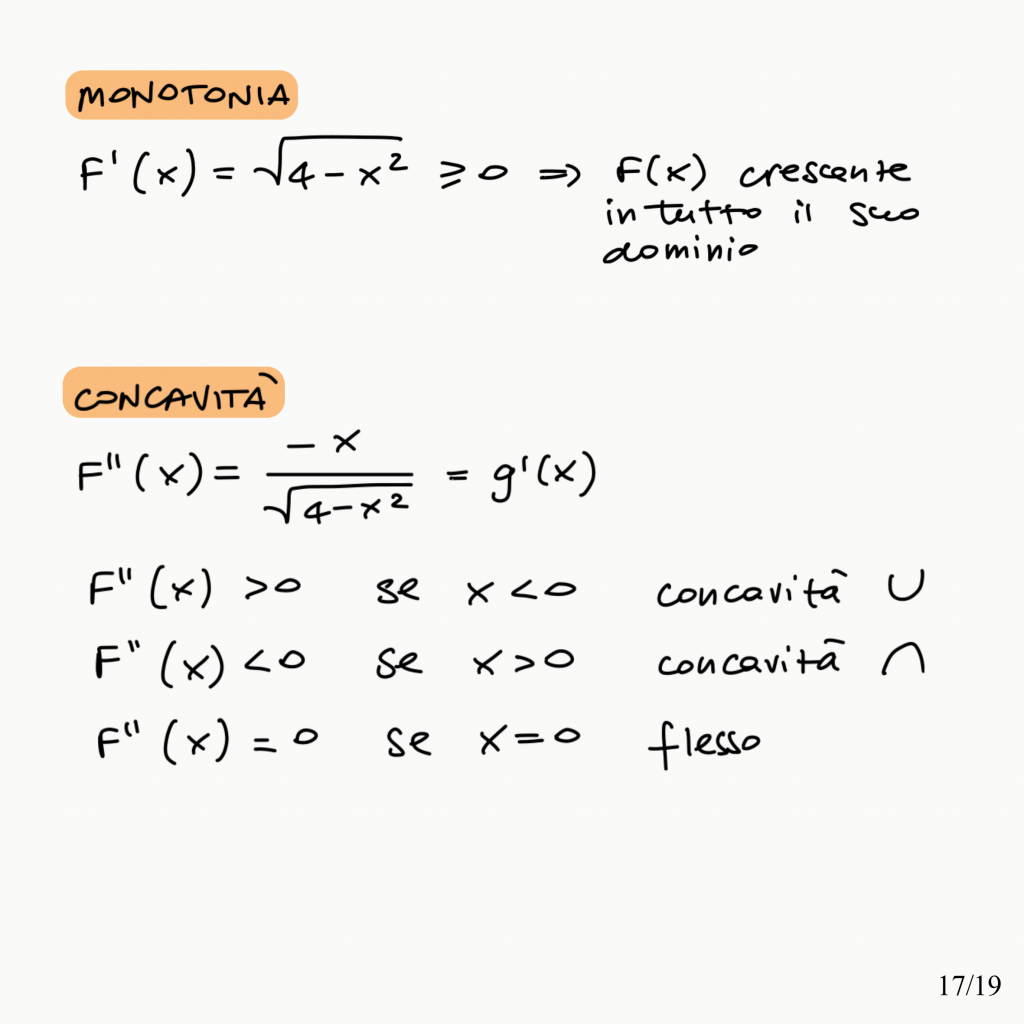 MONOTONIA
F'(x) = √4-x² ≥ 0 ⇒ F(x) crescente
in tutto il suo
dominio
CONCAVITÀ
F''(x) = -x/√4-x² = g'(x)
F''(x) > 0 se x < 0 concavità ∪
F''(x) < 0 se x > 0 concavità ∩
F''(x) = 0 se x = 0 flesso
17/19